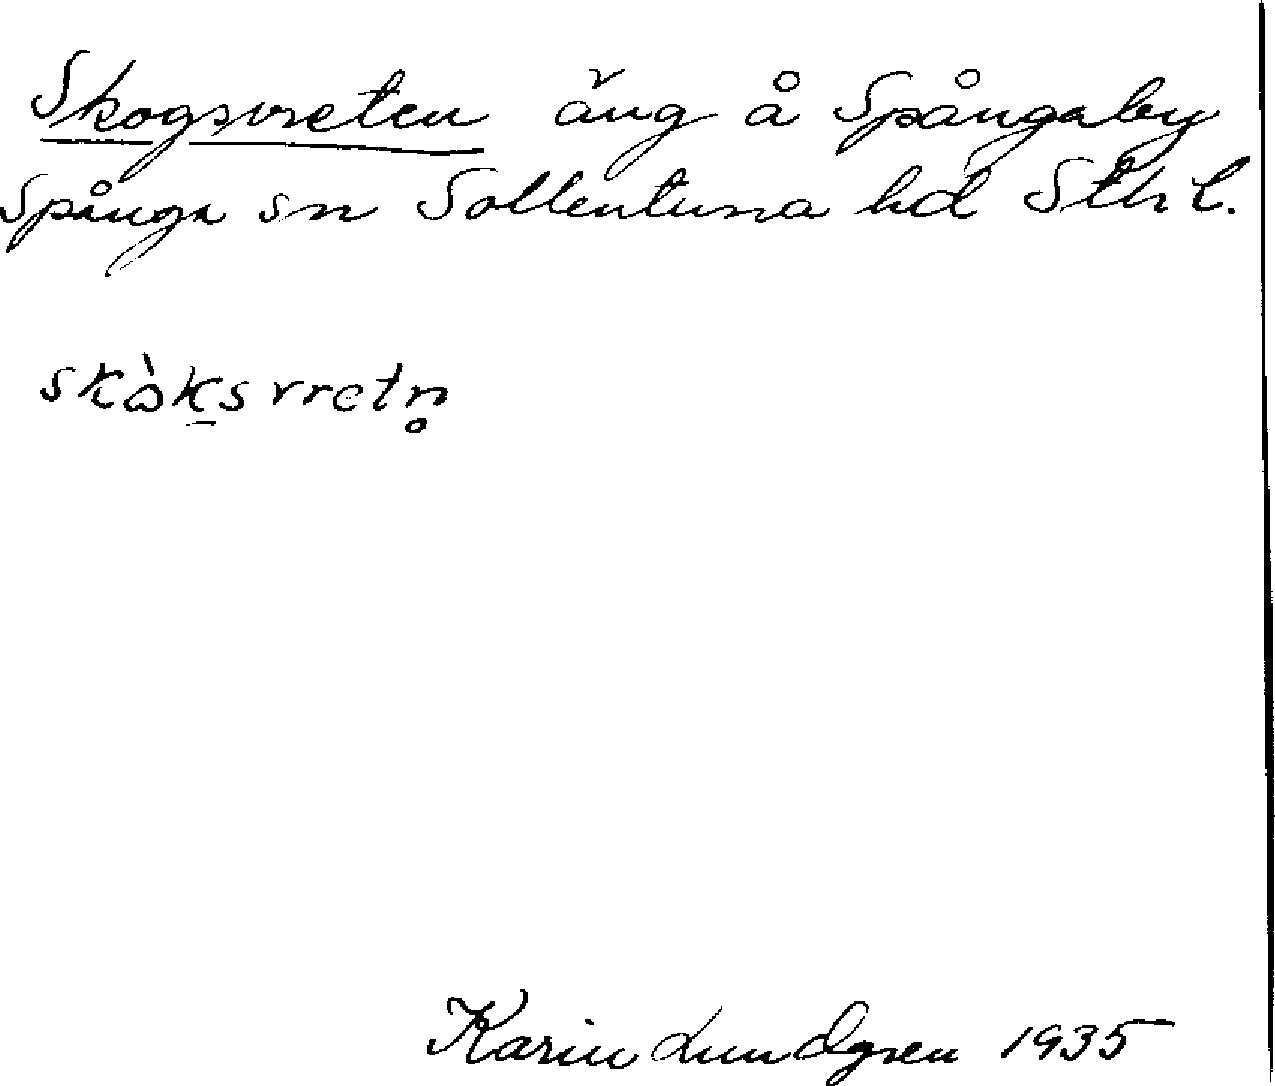 Skogsvreten äng å Spångaby
Spånga sn Sollentuna hd Sth l.
skὼk̠s vretn̥
Karin Lundgren 1935